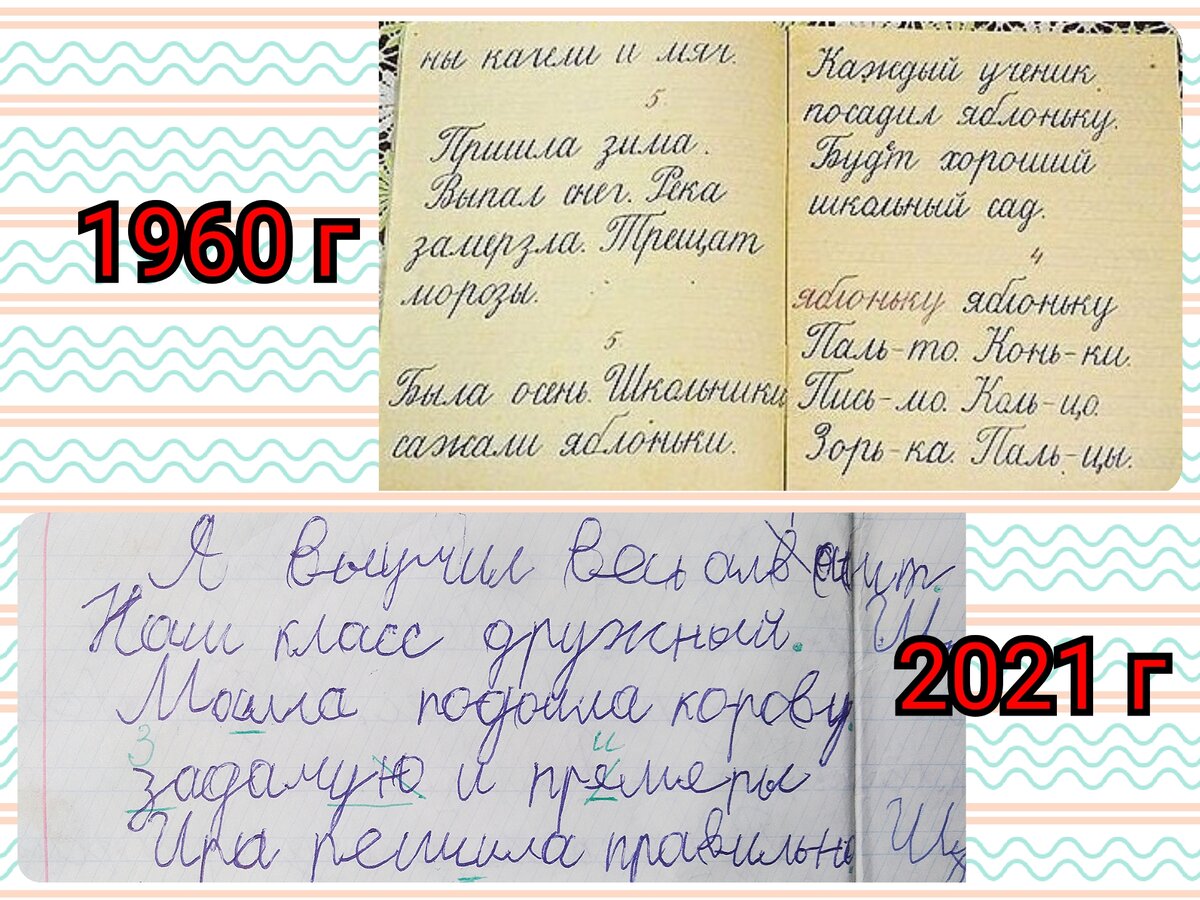 1960 г
ны качели и мяч.
5
Пришла зима.
Выпал снег. Река
замерзла. Трещат
морозы.
5
Была осень. Школьники
сажали яблоньки.
Каждый ученик
посадил яблоньку.
Будет хороший
школьный сад.
4
яблоньку яблоньку
Паль-то. Конь-ки.
Пись-мо. Коль-цо.
Зорь-ка. Паль-цы.
Я выучил весь
Наш класс дружный.
подоила корову
З и
и
Ира решила правильно
2021 г